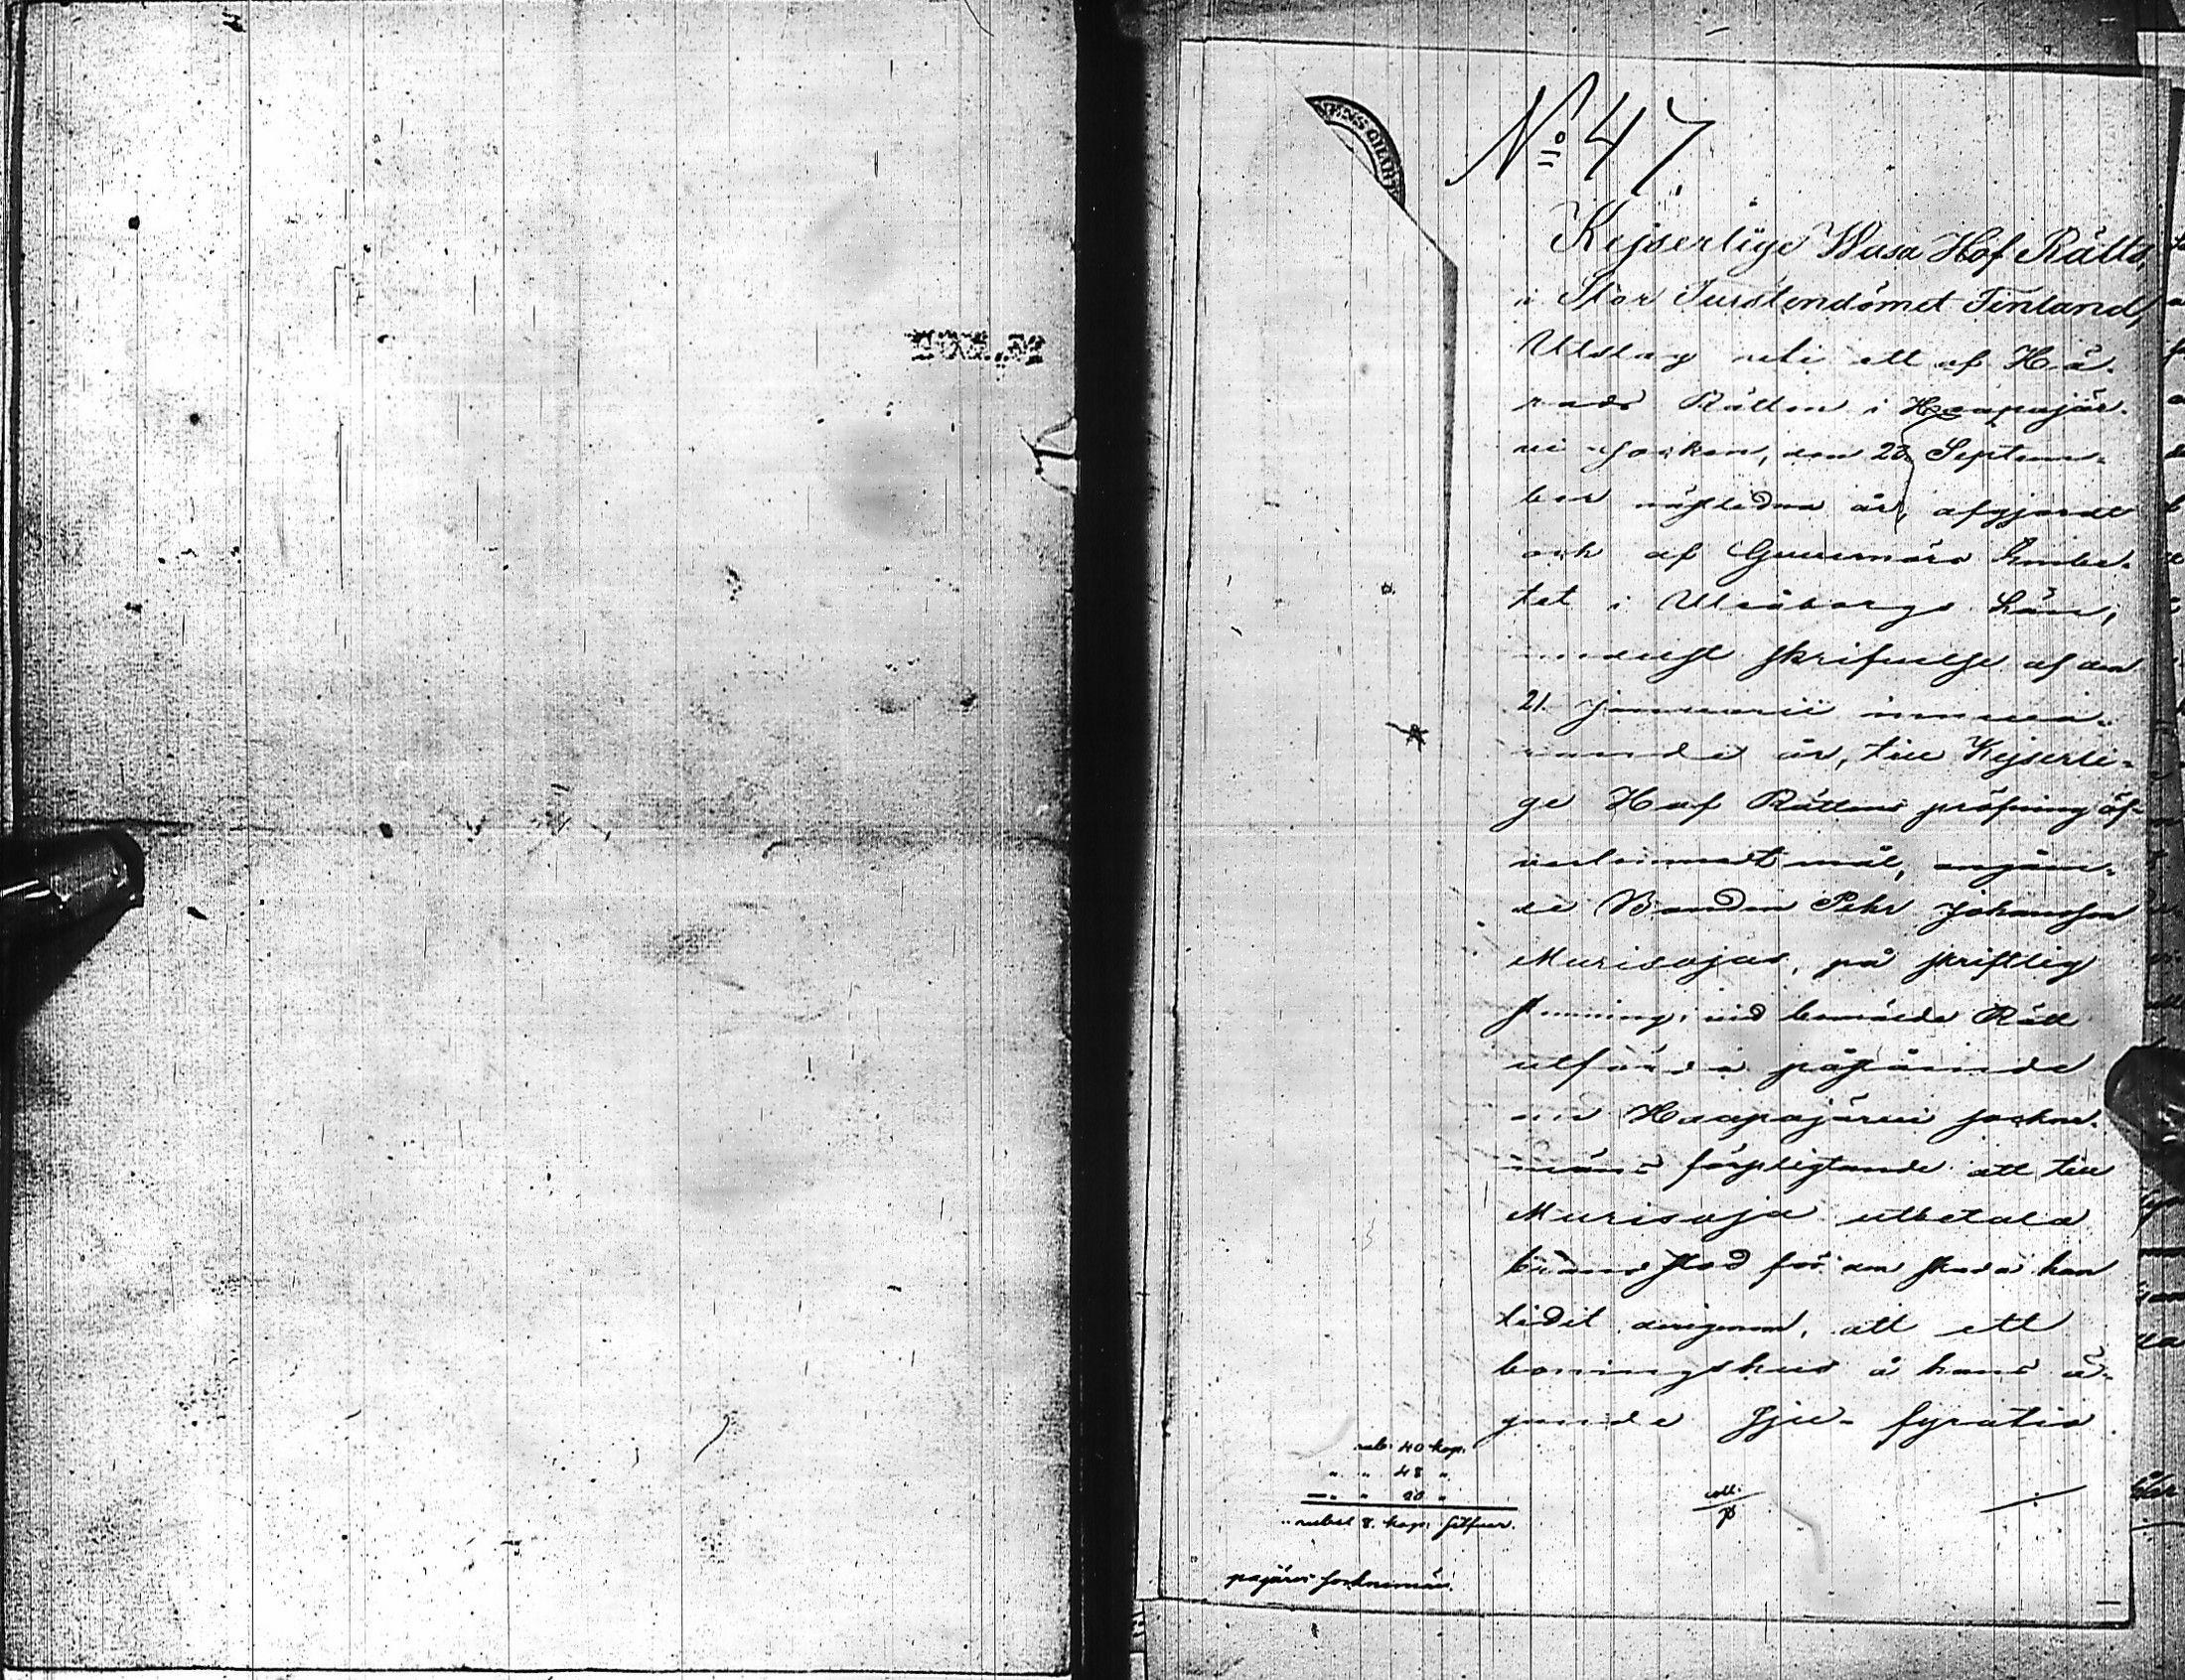 No 47.
Kejserlige Wasa Hof Rätts,
i Stor Furstendömet Finland,
Utslag uti ett af Hä-
rads Rätten i Haapajär-
vi Socken, den 23 Septem-
ber nästledna år, afgjordt
och af Guvernörs Embe-
tet i Uleåborgs Län,
medelst skrifvelse af den
21 Januarii inneva-
rande år, till Kejserli-
ge Hof Rättens pröfning öf-
verlemnadt mål, angåen-
de Bonden Pehr Johansson
Murisojas, på skriftlig
stemning, vid bemälde Rätt
utförda påstående
om Haapajärvi sockne-
mäns förpligtande att till
Murisoja utbetala
brandstod för den skada han
lidit derigenom, att ett
boningshus å hans ä-
gande sju-fyratio
rub: 40 kop:
" " 48 "
" " 20 "
" rubel 8. kop: silfver.
coll.
pajärvi socknemän.